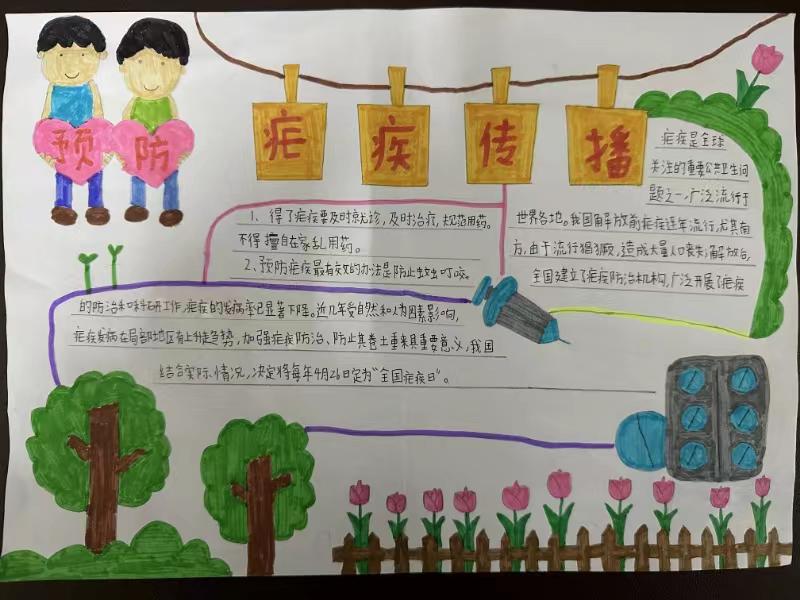 预防
疟疾传播
1、得了疟疾要及时就诊，及时治疗，规范用药。
不得擅自在家乱用药。
2、预防疟疾最有效的办法是防止蚊虫叮咬。
疟疾是全球
关注的重要公共卫生问
题之一，广泛流行于
世界各地。我国解放前疟疾连年流行，尤其南
方，由于流行猖獗，造成大量人口丧失，解放后，
全国建立了疟疾防治机构，广泛开展了疟疾
的防治和科研工作，疟疾的发病率已显著下降。近几年受自然和人为因素影响，
疟疾发病在局部地区有上升趋势，加强疟疾防治、防止其卷土重来具重要意义，我国
结合实际情况，决定将每年4月26日定为“全国疟疾日”。